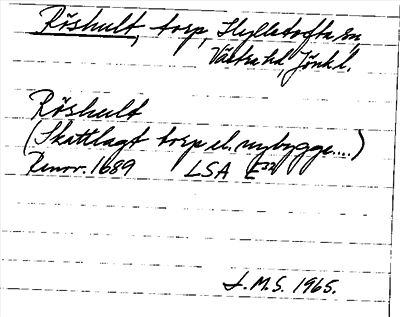 Röshult, torp, Hylletofta sn
Västra hd, Jönk l.
Röshult
(Skattlagt torp el. nybygge....)
Renov. 1689 LSA E32
J.M.S. 1965.